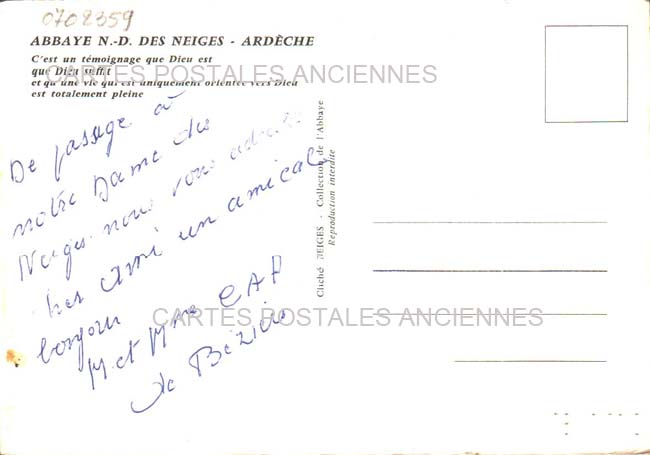 0702359
ABBAYE N.-D. DES NEIGES - ARDÈCHE
C'est un témoignage que Dieu est
que Dieu suffit
et qu'une vie qui est uniquement orientée vers Dieu
est totalement pleine
CARTES POSTALES ANCIENNES
De passage à
notre Dame des
Neiges nous vous
Ami un amical
bonjour
M et Mme CAP
de Béziers
Cliché NEIGES - Collection de l'Abbaye
Reproduction interdite
CARTES POSTALES ANCIENNES